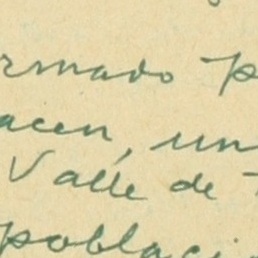 rmado p
acen, un
Valle de
poblaci